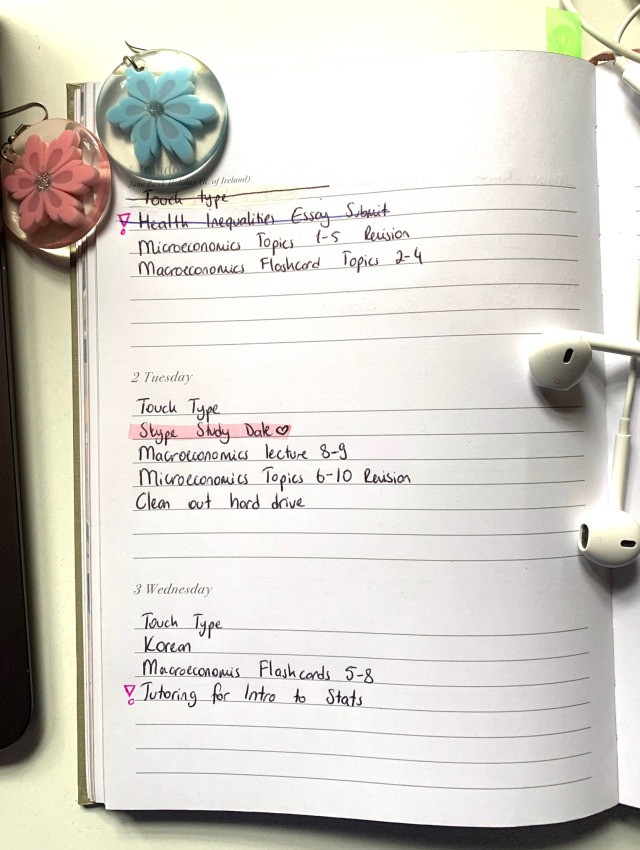 June Bank Holiday (R. of Ireland)
Touch type
Health Inequalities Essay Submit
Microeconomics Topics 1-5 Revision
Macroeconomics Flashcard Topics 2-4
2 Tuesday
Touch Type
Skype Study Date ♡
Macroeconomics lecture 8-9
Microeconomics Topics 6-10 Revision
Clean out hard drive
3 Wednesday
Touch Type
Korean
Macroeconomis Flashcards 5-8
Tutoring for Intro to Stats